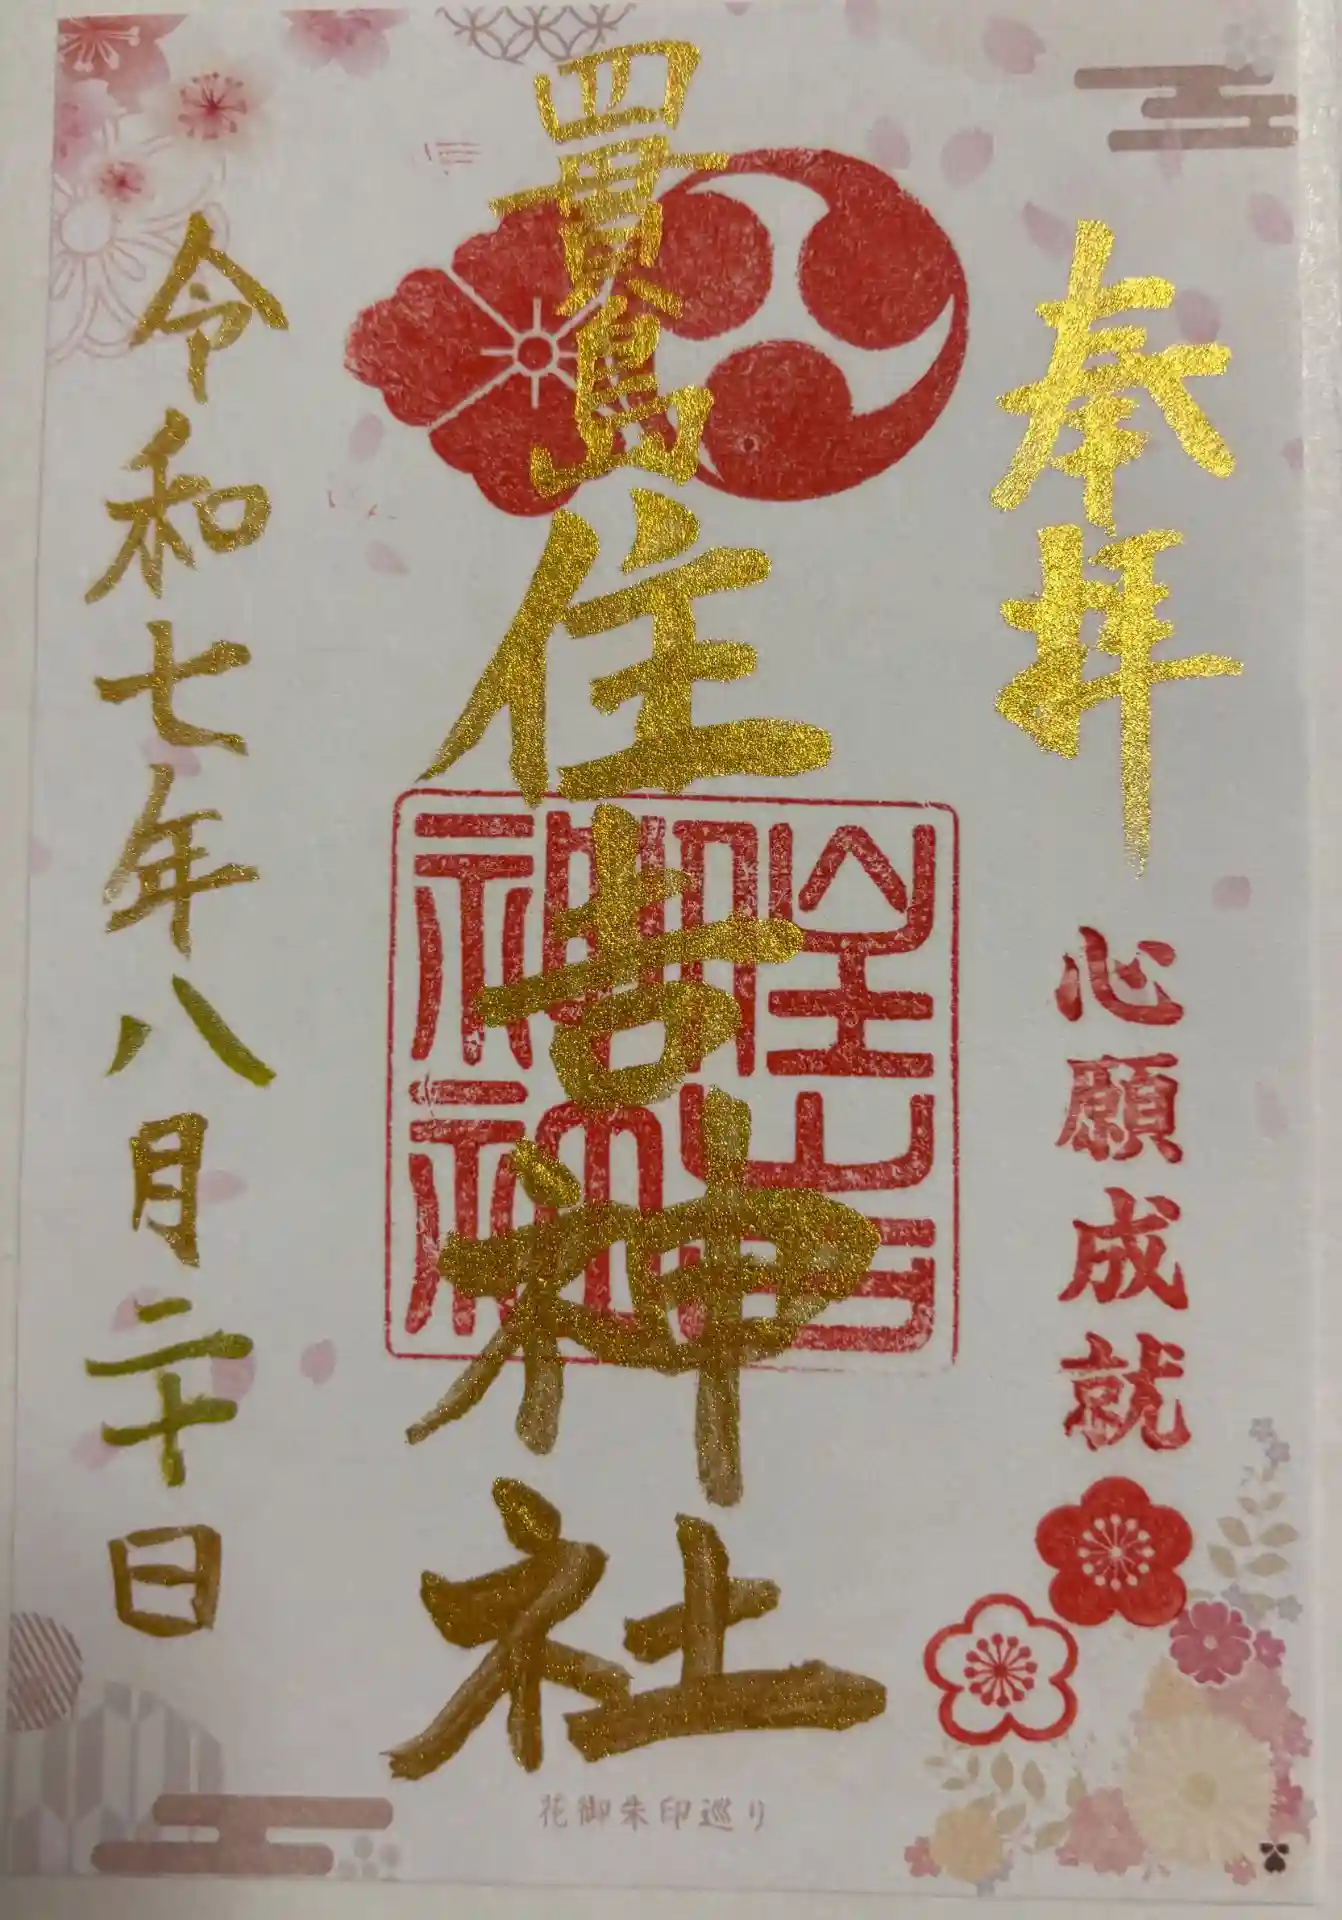 奉拝
心願成就
四貫島住吉神社
令和七年八月二十日
花御朱印巡り